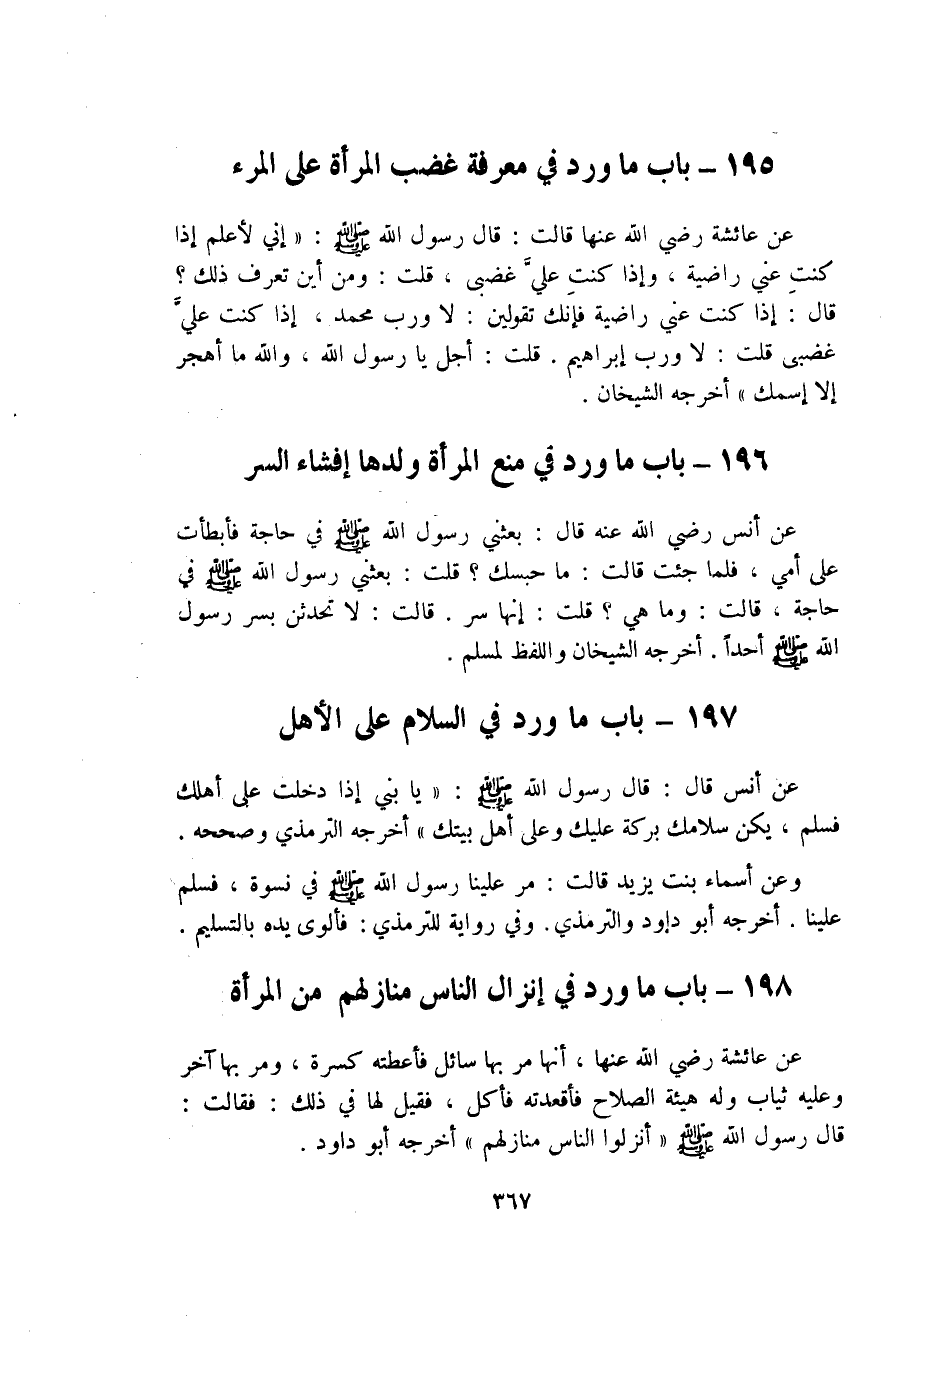 ١٩٥ ــ باب ما ورد في معرفة غضب المرأة على المرء
عن عائشة رضي الله عنها قالت : قال رسول الله ﷺ : « إني لأعلم إذا
كنتِ عني راضية ، وإذا كنتِ عليَّ غضبى ، قلت : ومن أين تعرف ذلك ؟
قال : إذا كنت عني راضية فإنك تقولين : لا ورب محمد ، إذا كنت عليَّ
غضبى قلت : لا ورب إبراهيم . قلت : أجل يا رسول الله ، والله ما أهجر
إلا إسمك » أخرجه الشيخان .
١٩٦ ــ باب ما ورد في منع المرأة ولدها إفشاء السر
عن أنس رضي الله عنه قال : بعثني رسول الله ﷺ في حاجة فأبطأت
على أمي ، فلما جئت قالت : ما حبسك ؟ قلت : بعثني رسول الله ﷺ في
حاجة ، قالت : وما هي ؟ قلت : إنها سر . قالت : لا تحدثن بسر رسول
الله ﷺ أحداً . أخرجه الشيخان واللفظ لمسلم .
١٩٧ ــ باب ما ورد في السلام على الأهل
عن أنس قال : قال رسول الله ﷺ : « يا بني إذا دخلت على أهلك
فسلم ، يكن سلامك بركة عليك وعلى أهل بيتك » أخرجه الترمذي وصححه .
وعن أسماء بنت يزيد قالت : مر علينا رسول الله ﷺ في نسوة ، فسلم
علينا . أخرجه أبو داود والترمذي. وفي رواية للترمذي : فألوى يده بالتسليم .
١٩٨ ــ باب ما ورد في إنزال الناس منازلهم من المرأة
عن عائشة رضي الله عنها ، أنها مر بها سائل فأعطته كسرة ، ومر بها آخر
وعليه ثياب وله هيئة الصلاح فأقعدته فأكل ، فقيل لها في ذلك : فقالت :
قال رسول الله ﷺ « أنزلوا الناس منازلهم » أخرجه أبو داود .
٣٦٧